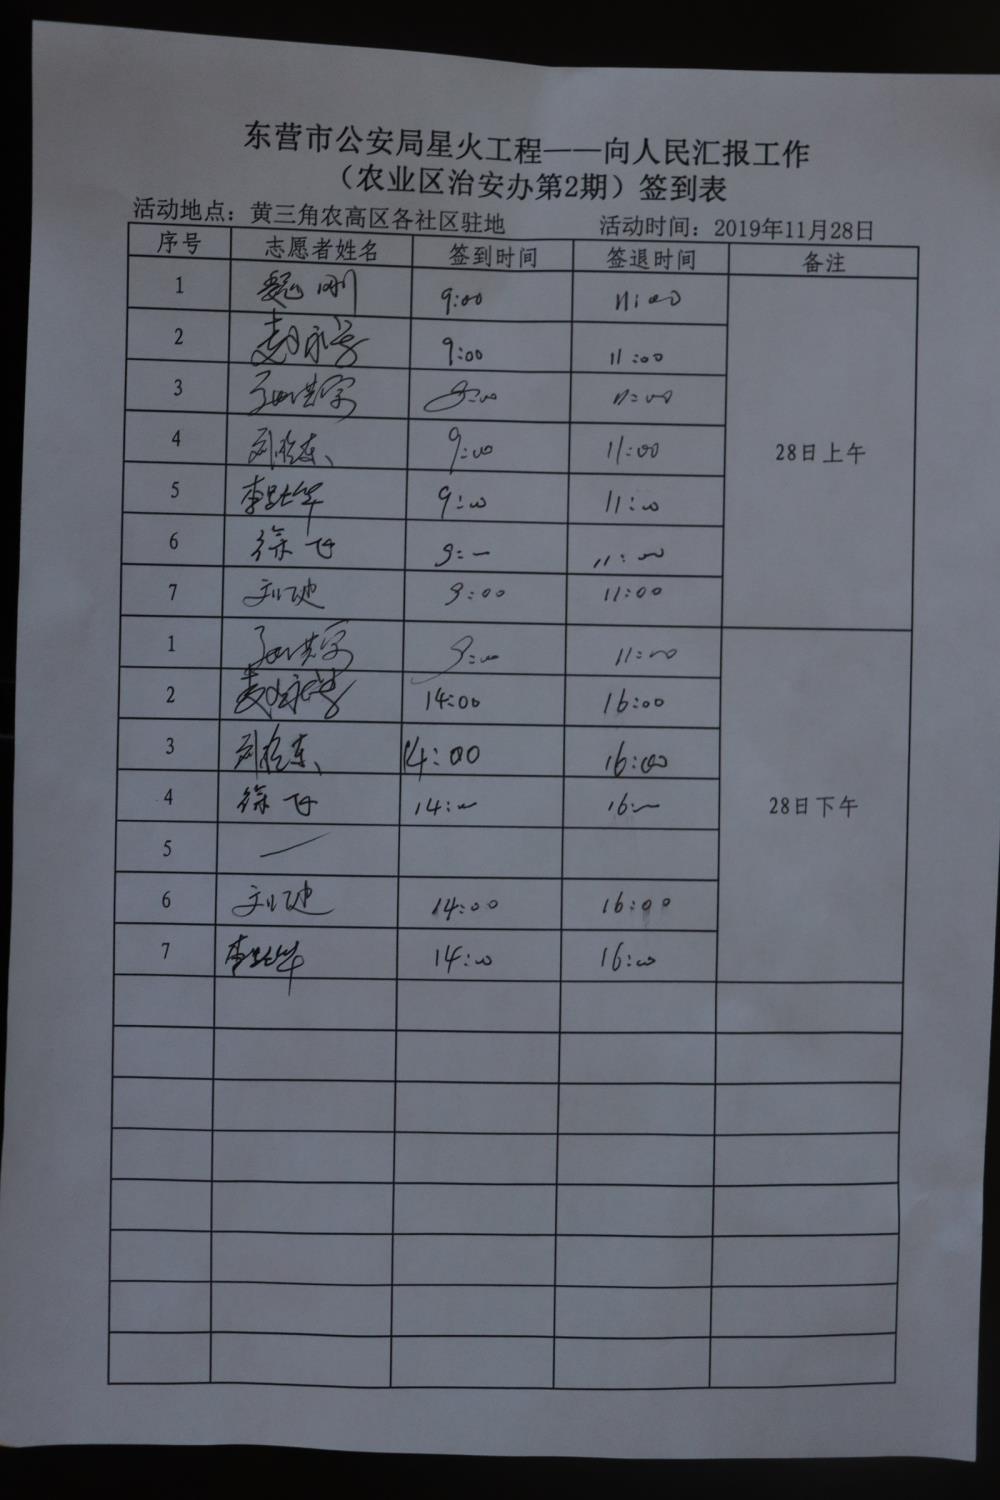 东营市公安局星火工程——向人民汇报工作
（农业区治安办第2期）签到表
活动地点：黄三角农高区各社区驻地 活动时间：2019年11月28日
序号 志愿者姓名 签到时间 签退时间 备注
1 魏刚 9:00 11:00
2 赵永 9:00 11:00
3 9:00 11:00
4 刘 东 9:00 11:00 28日上午
5 李 华 9:00 11:00
6 徐飞 9:— 11:00
7 刘 9:00 11:00
1 9:00 11:00
2 赵永 14:00 16:00
3 刘 东 14:00 16:00
4 徐飞 14:— 16:— 28日下午
5 —
6 刘 14:00 16:00
7 李 华 14:00 16:00